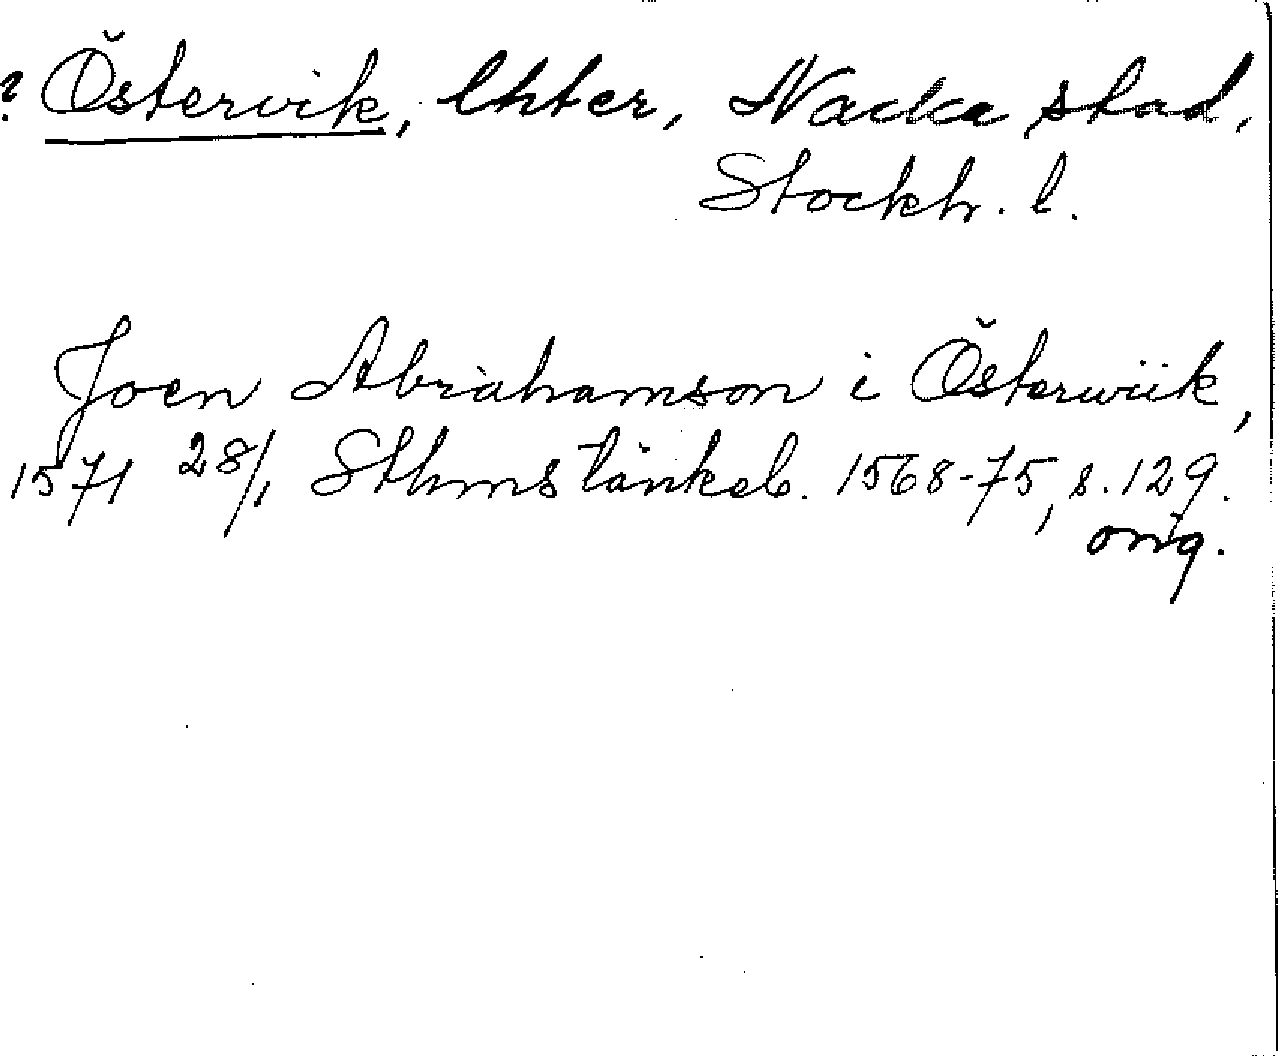 ? Östervik, lhter, Nacka stad,
Stockh. l.
Joen Abrahamson i Österwiik,
1571 28/1 Sthms tänkeb. 1568-75, s. 129.
orig.